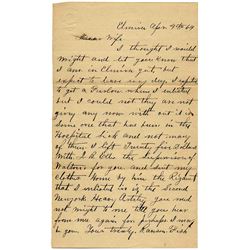 Elmira Apr 9th 64
Dear Wife
I thought I would
Might and let you know that
I am in Elmira yet but
expect to leave any day I expected
to get a Furlow when I enlisted
but I could not they are not
give any now with out it is
Some one that has been in the
Hospital Sick and not many
of them I left Twenty five Dollars
With the Supervisor of
Walton for you and sent my
clothes Home by him the Regiment
that I enlisted in is the Second
Newyork Heavy Artilery you need
not might to me till you hear
from me again for perhaps I may
to you. Yours truly.